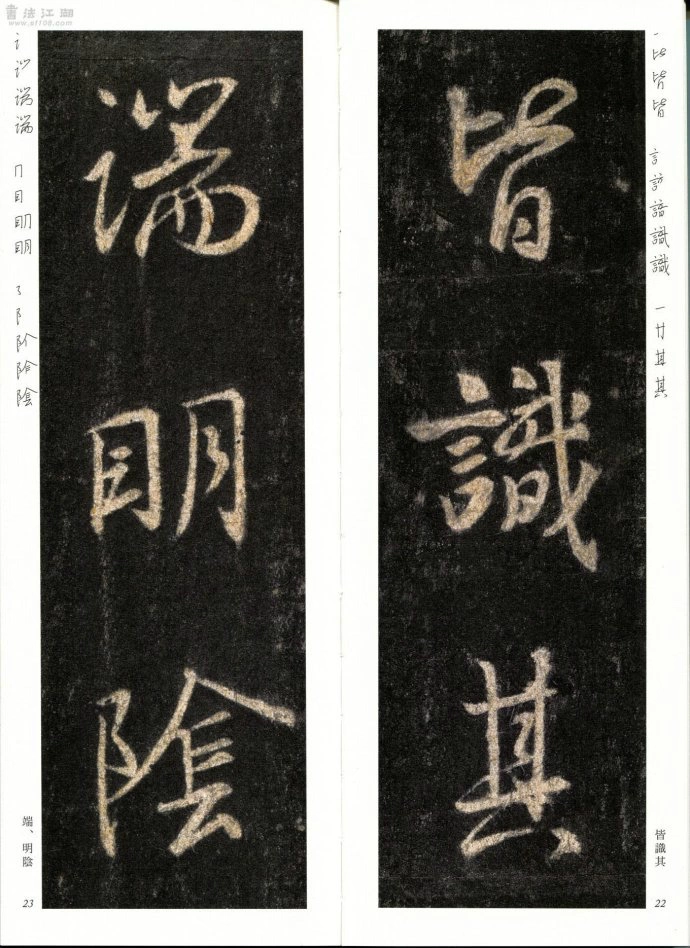 書法江湖
www.sf108.com
皆
識
其
皆識其
22
端
明
陰
端、明陰
23